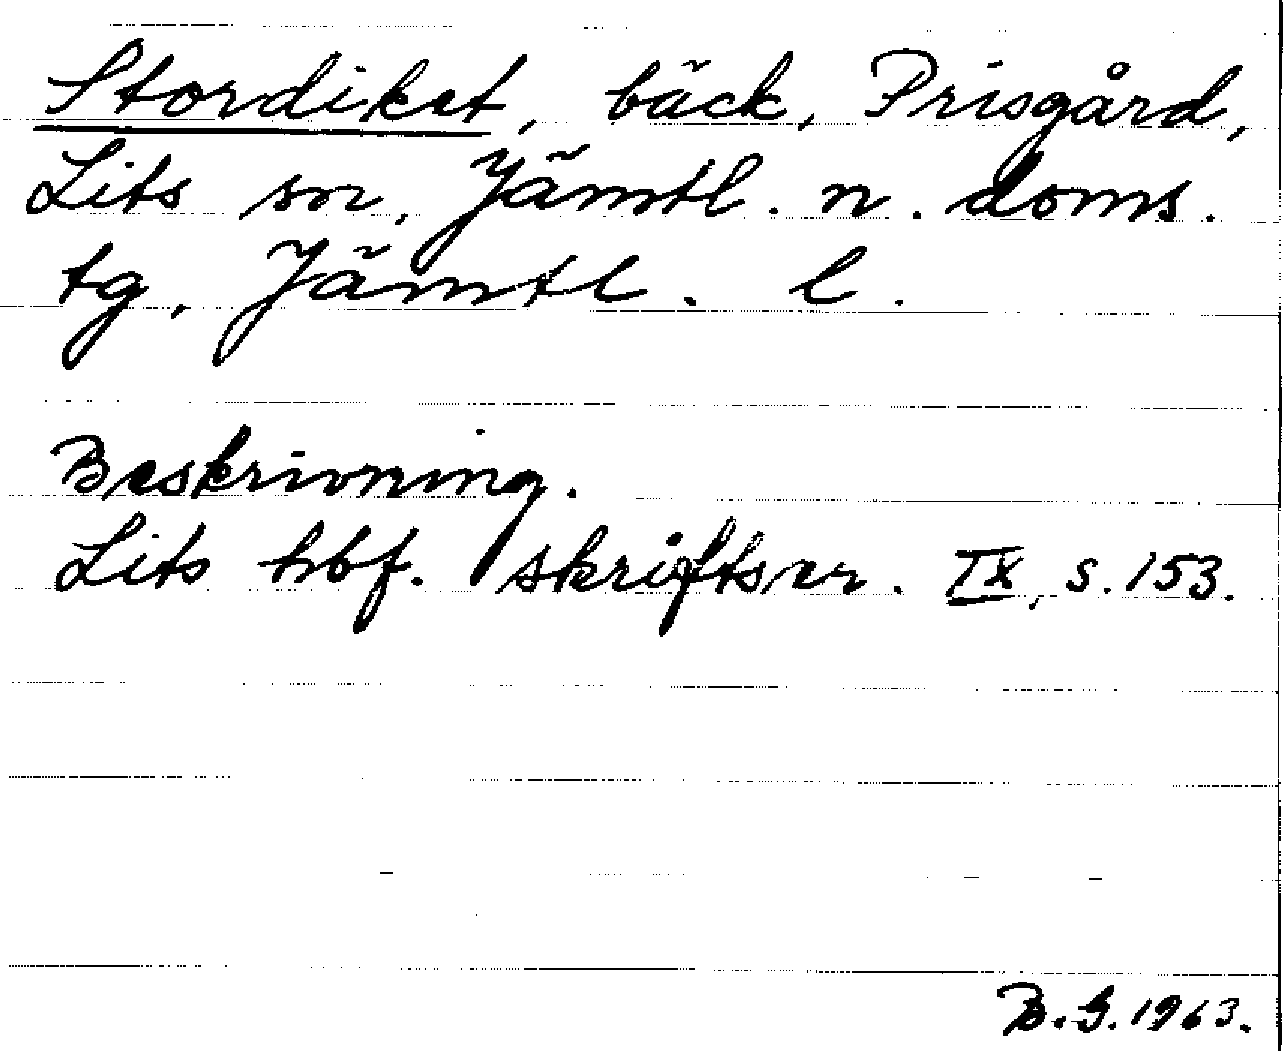 Stordiket, bäck, Prisgård,
Lits sn, Jämtl. n. doms.
tg, Jämtl. l.
Beskrivning.
Lits hbf. skriftser. IX, s. 153.
B.G. 1963.